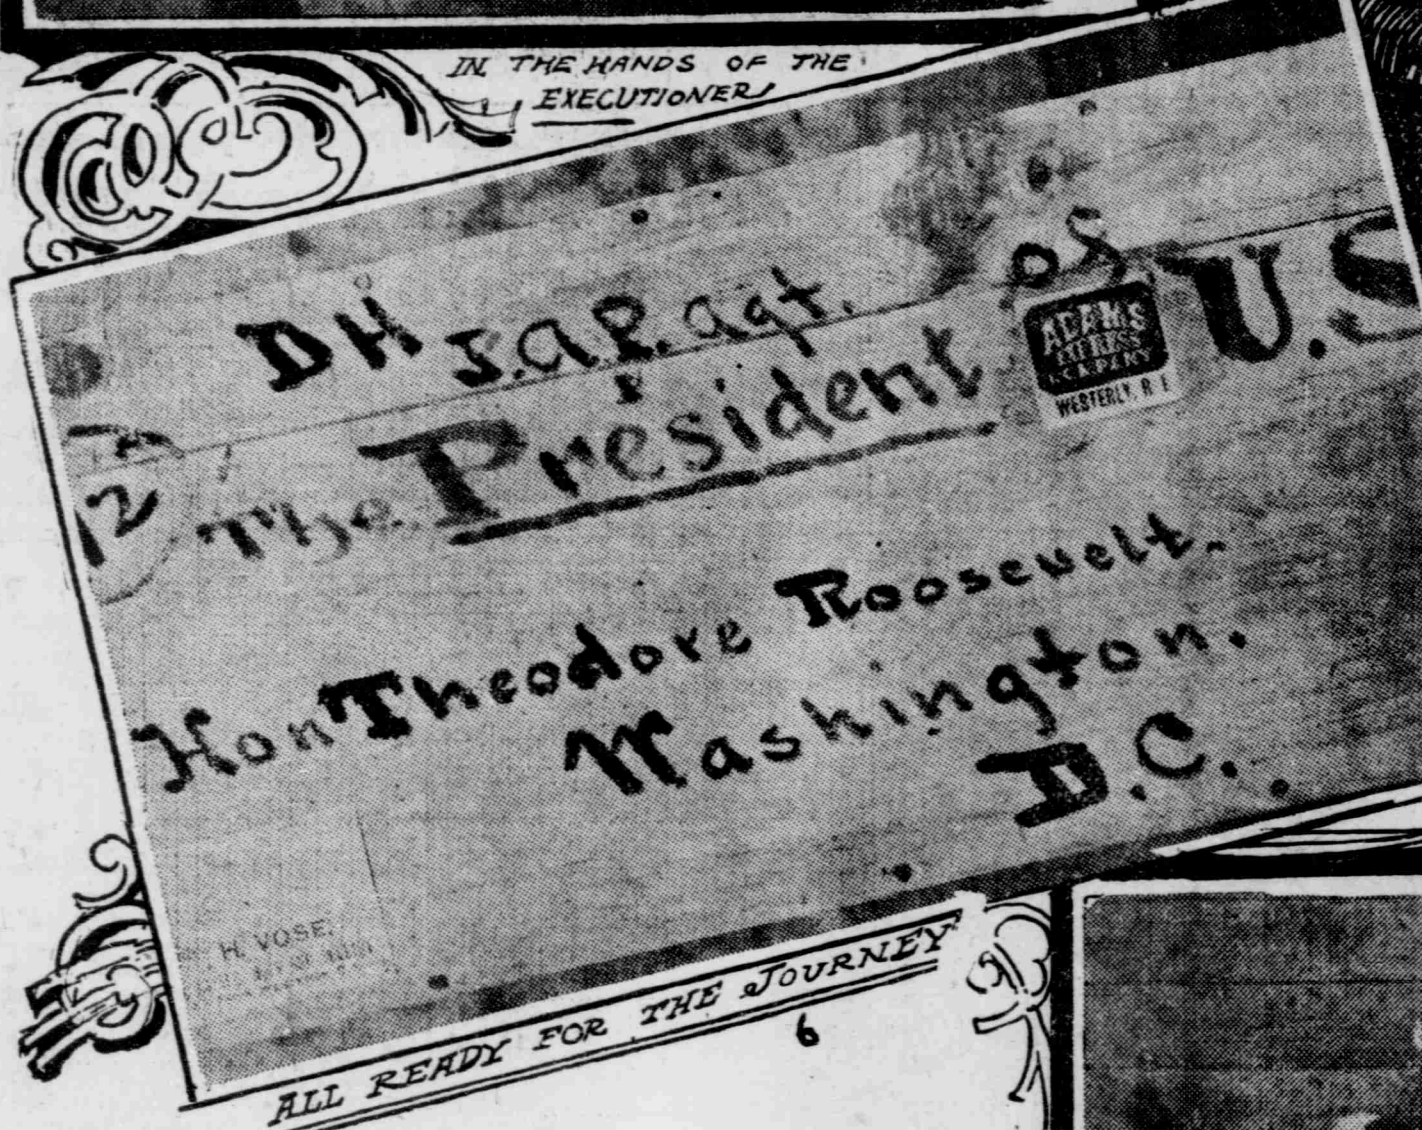 IN THE HANDS OF THE
EXECUTIONER
DH J.A.P. agt.
The President of U.S
ADAMS
EXPRESS
COMPANY
WESTERLY, R I.
12
Hon Theodore Roosevelt.
Washington.
D.C.
H. VOSE.
ALL READY FOR THE JOURNEY
6